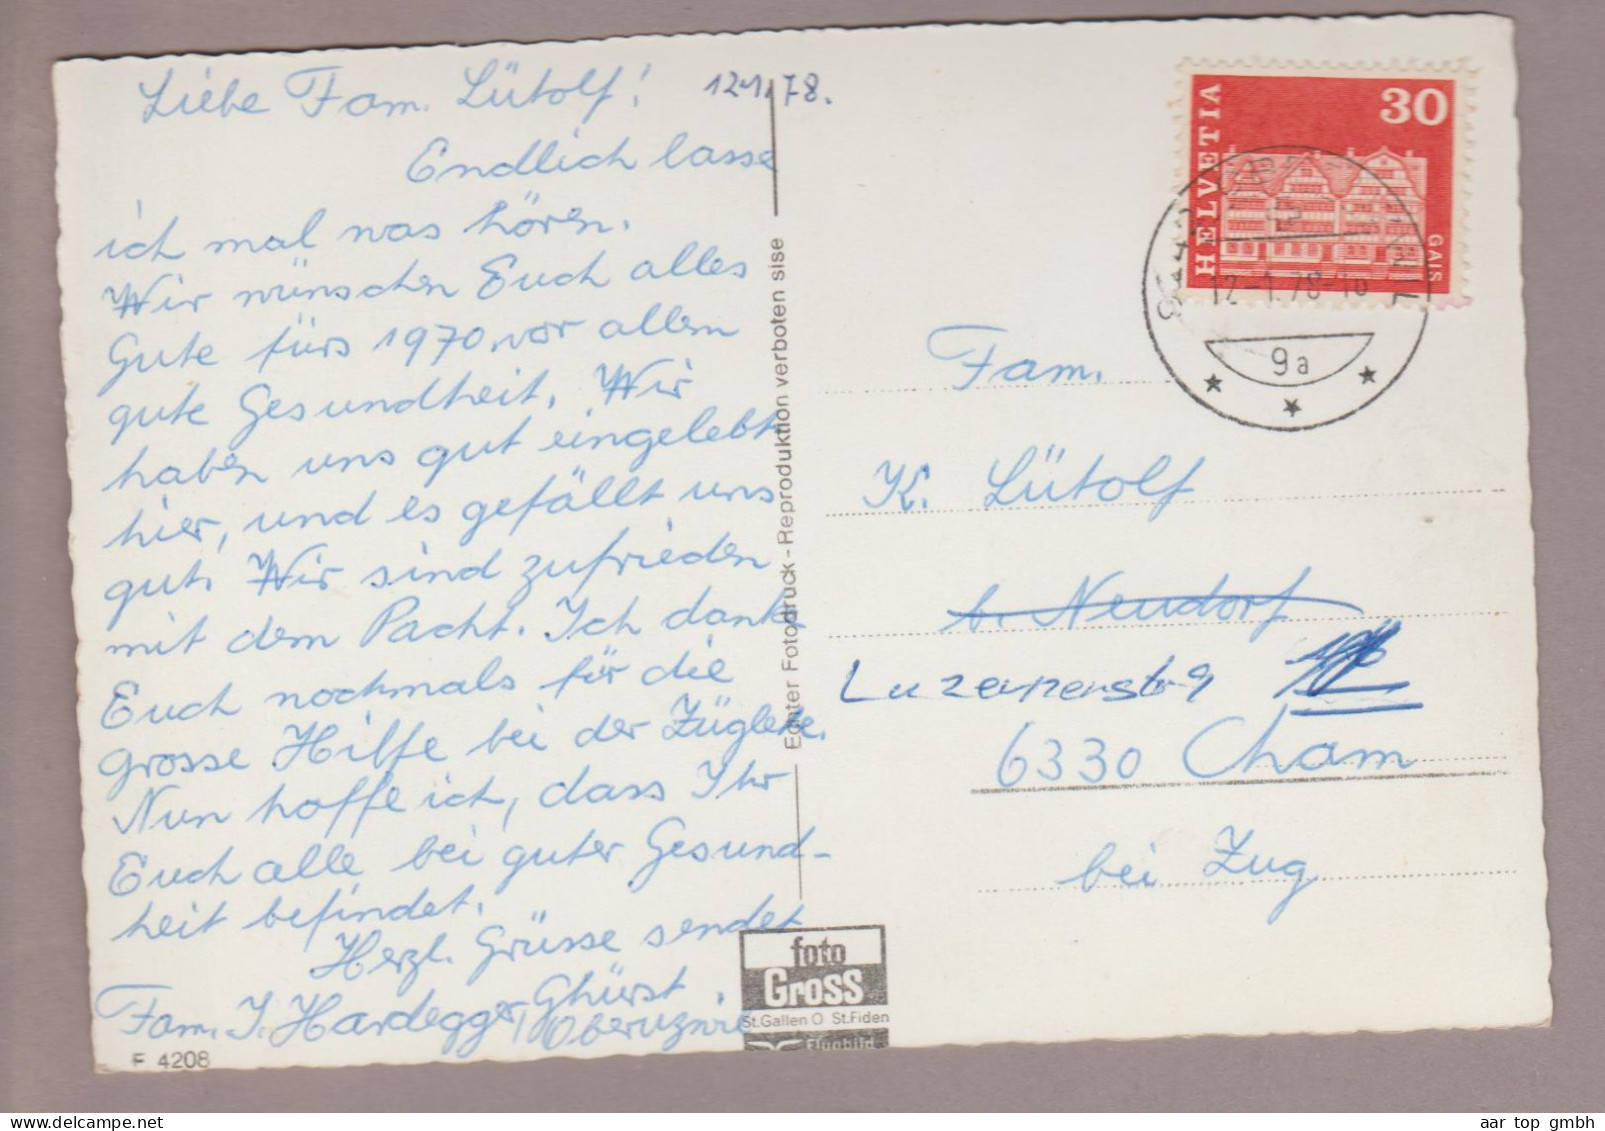 Liebe Fam. Lütolf!
121.78.
Endlich lasse
ich mal was hören.
Wir wünschen Euch alles
Gute fürs 1970, vor allem
gute Gesundheit. Wir
haben uns gut eingelebt
hier, und es gefällt uns
gut. Wir sind zufrieden
mit dem Pacht. Ich danke
Euch nochmals für die
grosse Hilfe bei der Züglete.
Nun hoffe ich, dass Ihr
Euch alle bei guter Gesund-
heit befindet.
Herzl. Grüsse sendet
Fam. J. Hardegger, Ghürst
Oberuzwil
F 4208
Echter Fotodruck - Reproduktion verboten sise
foto
Gross
St.Gallen O St.Fiden
Flugbild
HELVETIA
30
GAIS
12.-1.78-16
9a
Fam.
K. Lütolf
b. Neudorf
Luzernerstr
6330 Cham
bei Zug
aar top gmbh